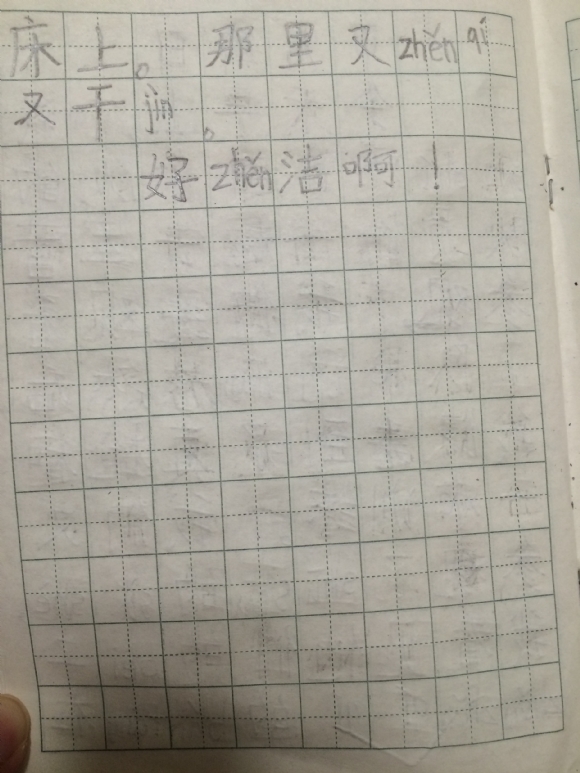 床上。那里又zhěnqí
又干净。
好zhěn洁啊！